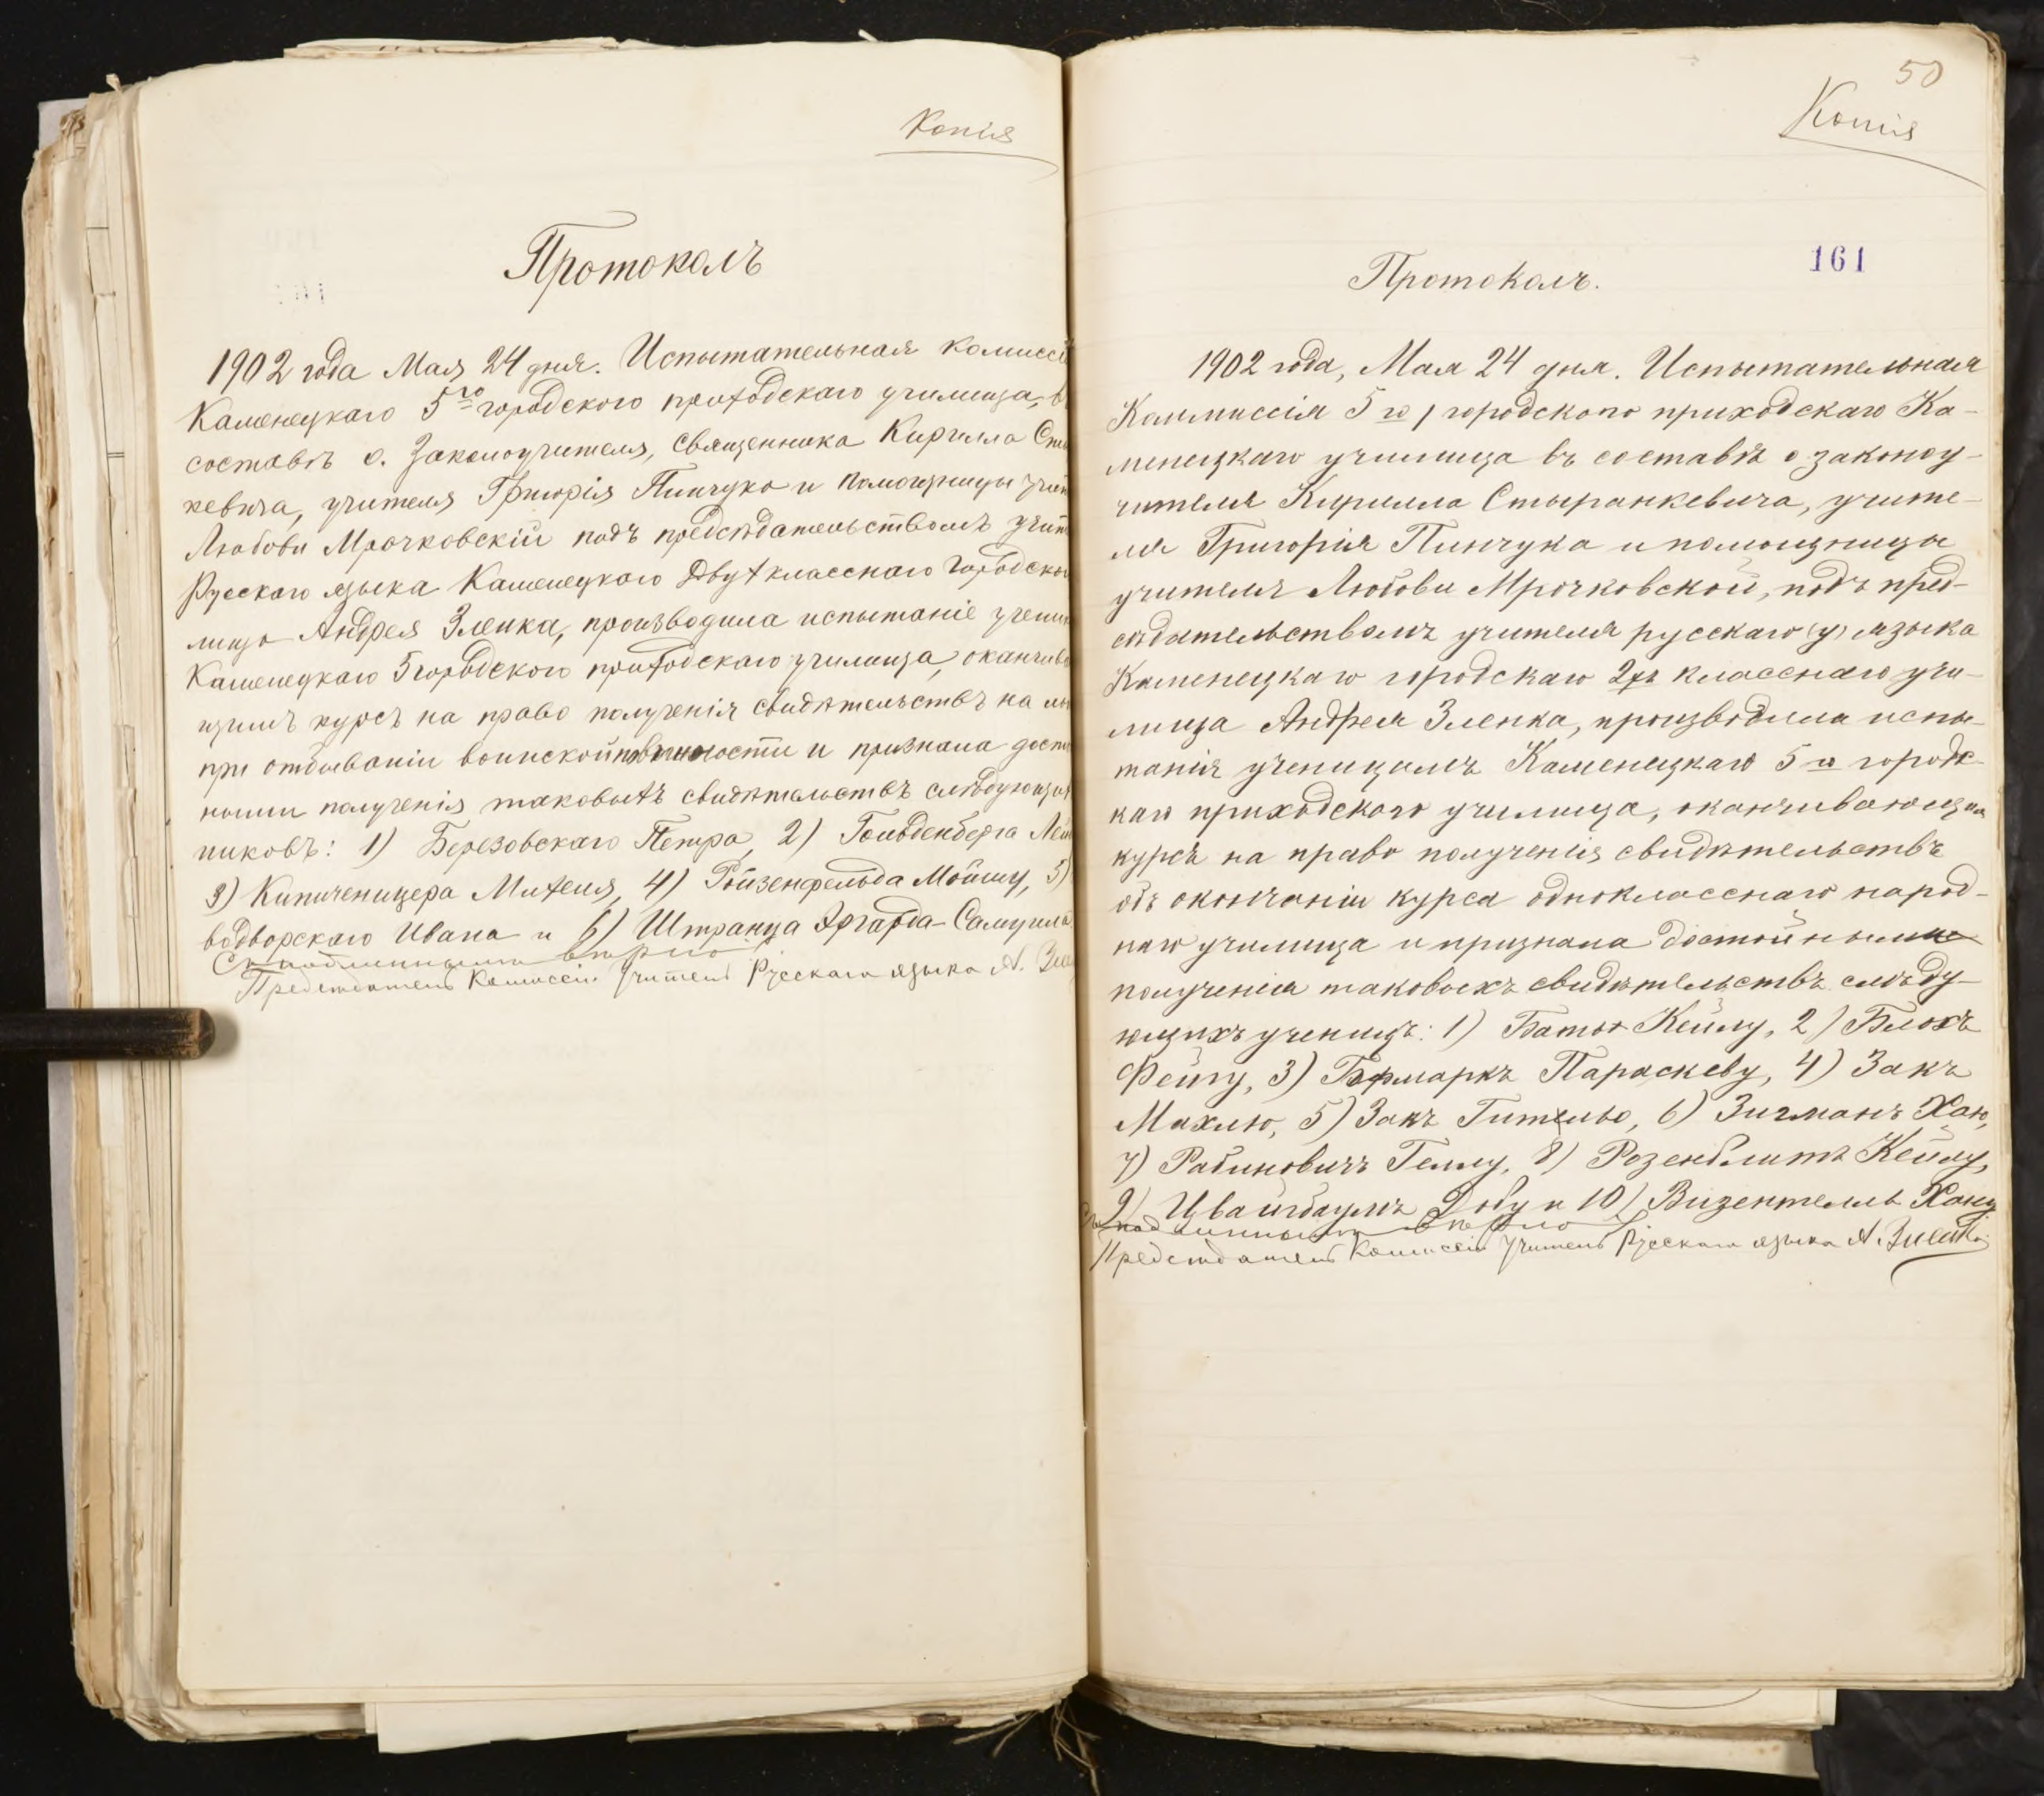 Копія
Протоколъ
1902 года Мая 24 дня. Испытательная комиссі
Каменецкаго 5го городского приходскаго училища, в
составѣ о. Законоучителя, священника Кирилла Сты
кевича, учителя Григорія Пинчука и помощницы учит
Любови Мрочковскій подъ предсѣдательствомъ учит
Русскаго языка Каменецкаго Двухкласснаго Городско
лища Андрея Зленка, производила испытаніе учени
Каменецкаго 5 городского приходскаго училища, оканчив
щимъ курсъ на право полученія свидѣтельствъ на ль
при отбываніи воинской повинности и признала досто
ными полученія таковыхъ свидѣтельствъ слѣдующих
никовъ: 1) Березовскаго Петра, 2) Гольденберга Лей
3) Кипиченицера Михеля, 4) Ройзенфельда Мойшу, 5)
водворскаго Ивана и 6) Штранца Эргарда-Самуила
Съ подлиннымъ вѣрно
Предсѣдатель Комиссіи Учитель Русскаго языка А. Зле
50
Копія
161
Протоколъ.
1902 года, Мая 24 дня. Испытательная
Коммиссія 5го городского приходскаго Ка-
менецкаго училища въ составѣ о законоу-
чителя Кирилла Стыранкевича, учите-
ля Григорія Пинчука и помощницы
учителя Любови Мрочковской, подъ пред-
сѣдательствомъ учителя русскаго (у) языка
Каменецкаго городскаго 2хъ класснаго учи-
лища Андрея Зленка, производила испы-
танія ученицамъ Каменецкаго 5го городс-
каго приходского училища, оканчивающимъ
курсъ на право полученія свидѣтельствъ
объ окончаніи курса одноклассного народ-
наго училища и признала достойными
полученія таковыхъ свидѣтельствъ слѣду-
ющихъ ученицъ: 1) Батью Кейлу, 2) Блохъ
Фейгу, 3) Гофмаркъ Параскеву, 4) Закъ
Махлю, 5) Закъ Гителью, 6) Зигманъ Хаю,
7) Рабиновичъ Гелму, 8) Розенблитъ Кейлу,
9) Цвайгбаумъ Добу и 10) Визентелль Хану
Съ подлиннымъ вѣрно
Предсѣдатель Комиссіи Учитель Русскаго языка А. Зленко